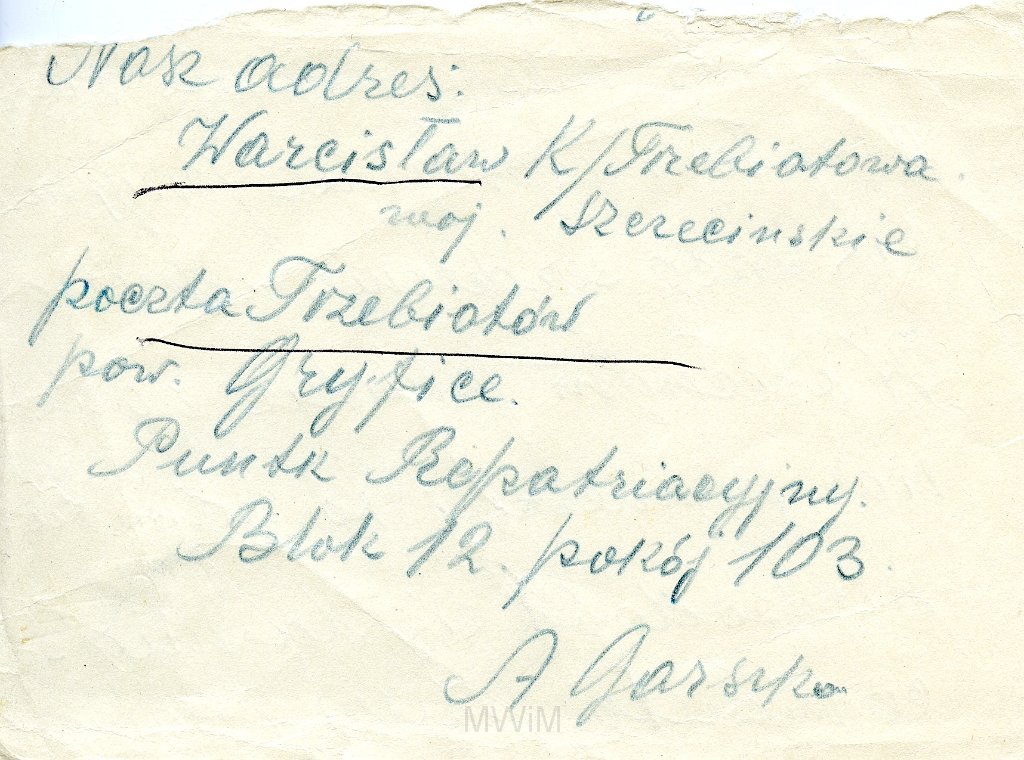 Nasz adres:
Warcisław K/Trzebiatowa.
woj. Szczecinskie
poczta Trzebiatów
pow. Gryfice.
Puntk Repatriacyjny.
Blok 12. pokój 103.
A Garszko
MWiM